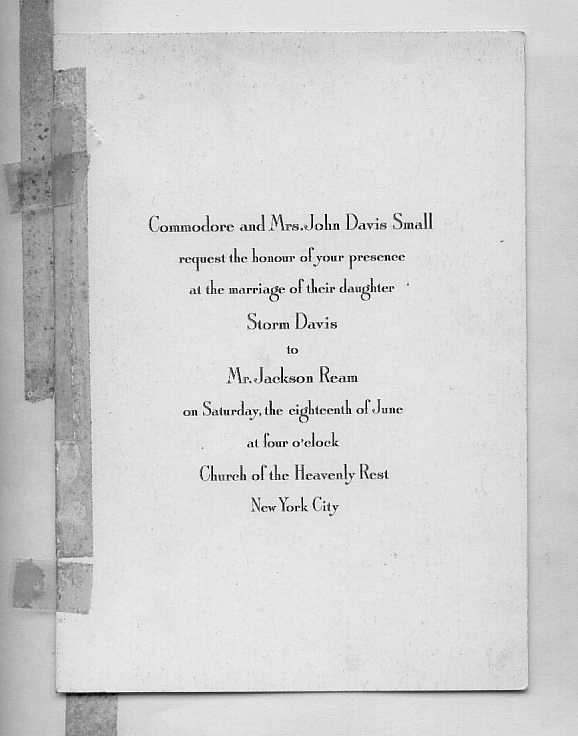 Commodore and Mrs. John Davis Small
request the honour of your presence
at the marriage of their daughter
Storm Davis
to
Mr. Jackson Ream
on Saturday, the eighteenth of June
at four o'clock
Church of the Heavenly Rest
New York City